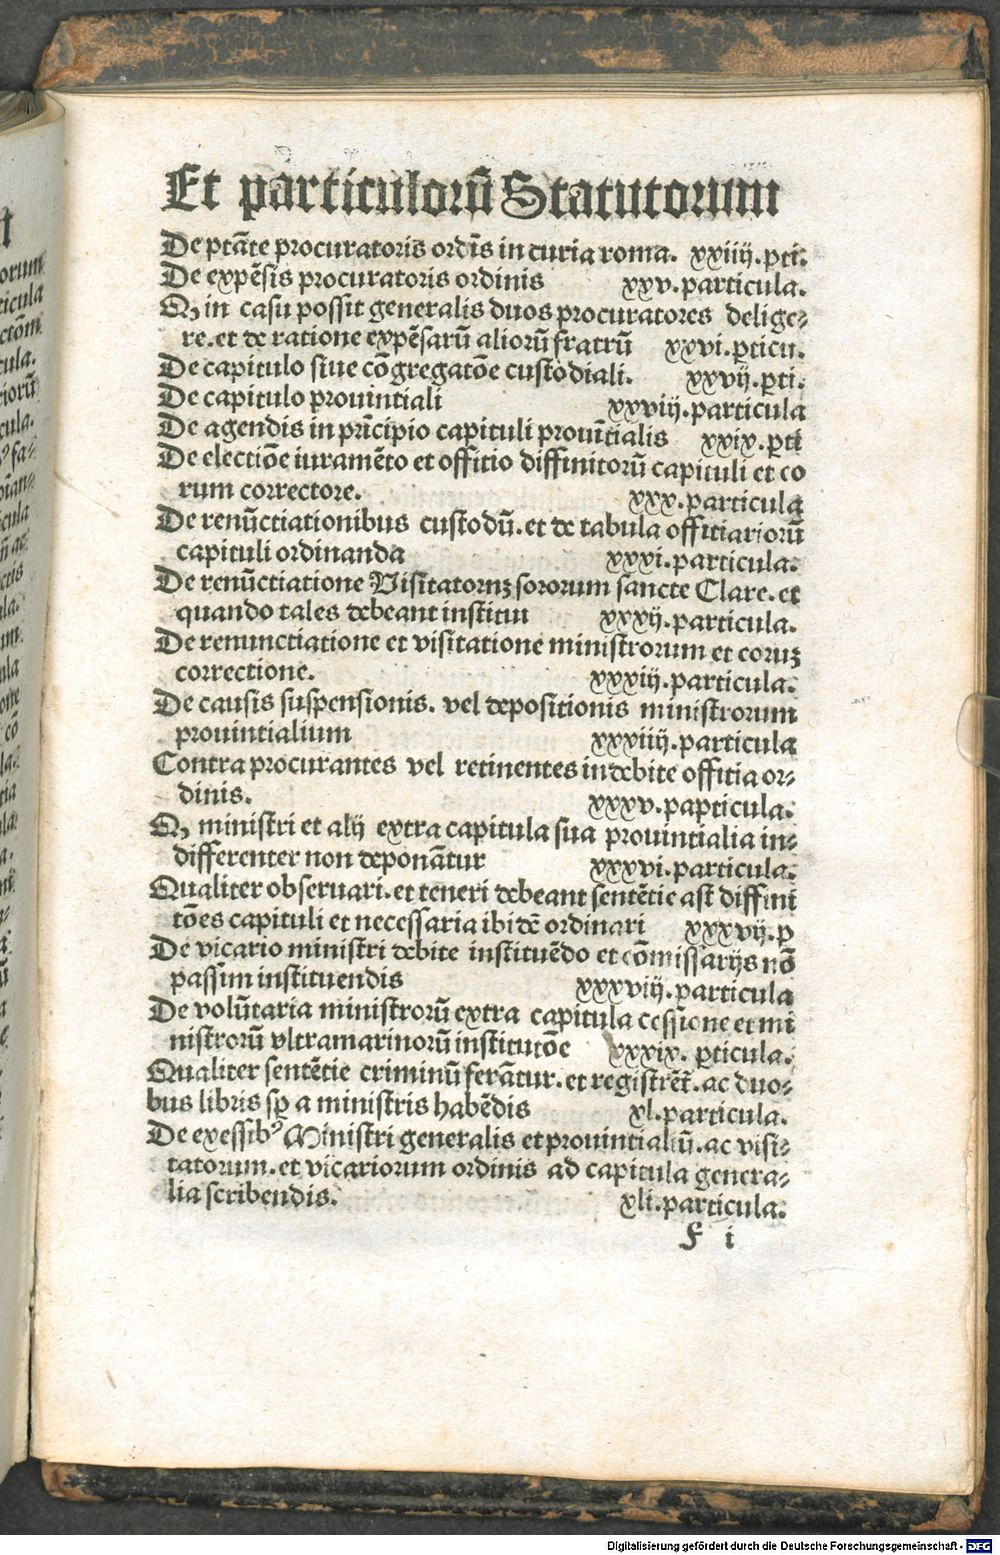 Et particulorū Statutorum
De ptāte procuratoris ordīs in curia roma. xxiiij.pti.
De expēsis procuratoris ordinis xxv.particula.
Q, in casu possit generalis duos procuratores delige-
re.et de ratione expēsarū aliorū fratrū xxvi.p̄ticu.
De capitulo siue cōgregatōe custodiali. xxvij.p̄ti.
De capitulo prouintiali xxviij.particula
De agendis in prīcipio capituli prouītialis xxix.p̄ti
De electiōe iuramēto et offitio diffinitorū capituli et eo
rum correctore. xxx.particula
De renūctiationibus custodū.et de tabula offitiariorū
capituli ordinanda xxxi.particula.
De renūctiatione Visitatoruꝫ sororum sancte Clare.et
quando tales debeant institui xxxij.particula.
De renunctiatione et visitatione ministrorum et eoruꝫ
correctione. xxxiij.particula.
De causis suspensionis. vel depositionis ministrorum
prouintialium xxxiiij.particula
Contra procurantes vel retinentes indebite offitia or-
dinis. xxxv.papticula.
Q, ministri et alij extra capitula sua prouintialia in-
differenter non deponātur xxxvi.particula.
Qualiter obseruari.et teneri debeant sentētie ast̄ diffini
tōes capituli et necessaria ibidē ordinari xxxvij.p̄
De vicario ministri debite instituēdo et cōmissarijs nō
passim instituendis xxxviij.particula
De volūtaria ministrorū extra capitula cessione et mi
nistrorū vltramarinorū institutōe xxxix. p̄ticula.
Qualiter sentētie criminū ferātur.et registrēt̄.ac duo-
bus libris sꝑ a ministris habēdis xl.particula.
De exessibꝰ Ministri generalis et prouintialiū.ac visi-
tatorum.et vicariorum ordinis ad capitula genera-
lia scribendis. xli.particula.
F i
Digitalisierung gefördert durch die Deutsche Forschungsgemeinschaft - DFG